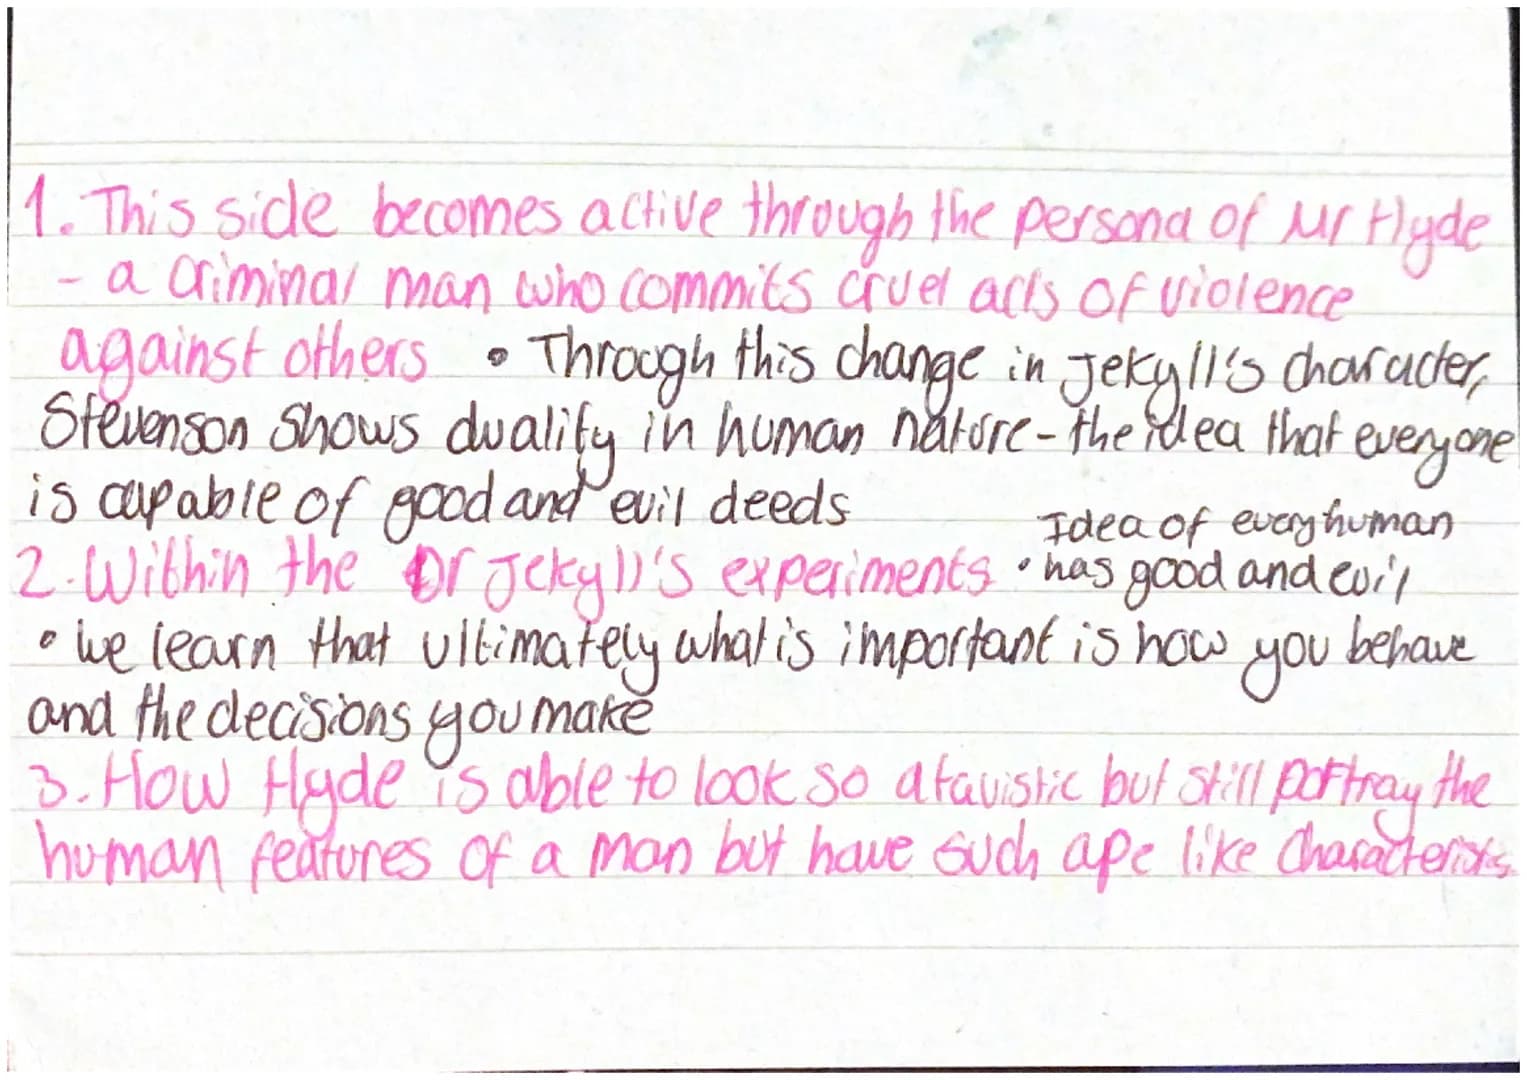 1. This side becomes active through the persona of Mr Hyde
- a criminal man who commits cruel acts of violence
against others • Through this change in Jekyll's character,
Stevenson shows duality in human nature - the idea that everyone
is capable of good and evil deeds
Idea of every human
2. Within the Dr Jekyll's experiments • has good and evil
• We learn that ultimately what is important is how you behave
and the decisions you make
3. How Hyde is able to look so atavistic but still portray the
human features of a man but have such ape like characteristics.